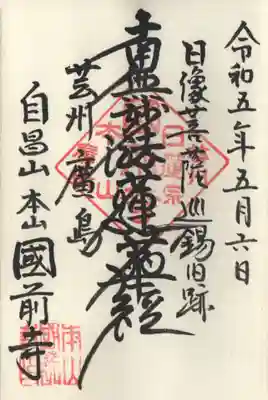 令和五年五月六日
日像菩薩巡錫旧跡
南無妙法蓮華経
芸州廣島
自昌山本山國前寺